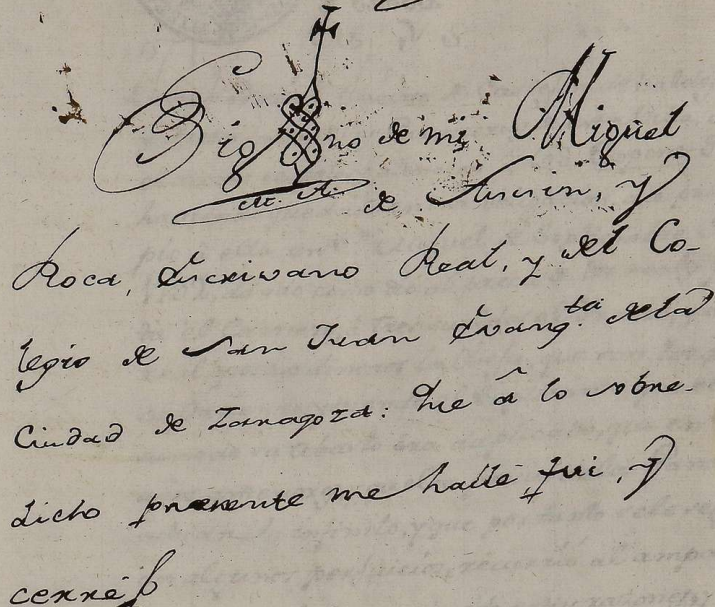 Sig no de mi Miguel
M. A. de Ancin, y
Roca, Escrivano Real, y del Co-
legio de San Juan Evang.ta dela
Ciudad de Zaragoza: Que â lo sobre-
dicho presente me hallé, fui, y
cerré